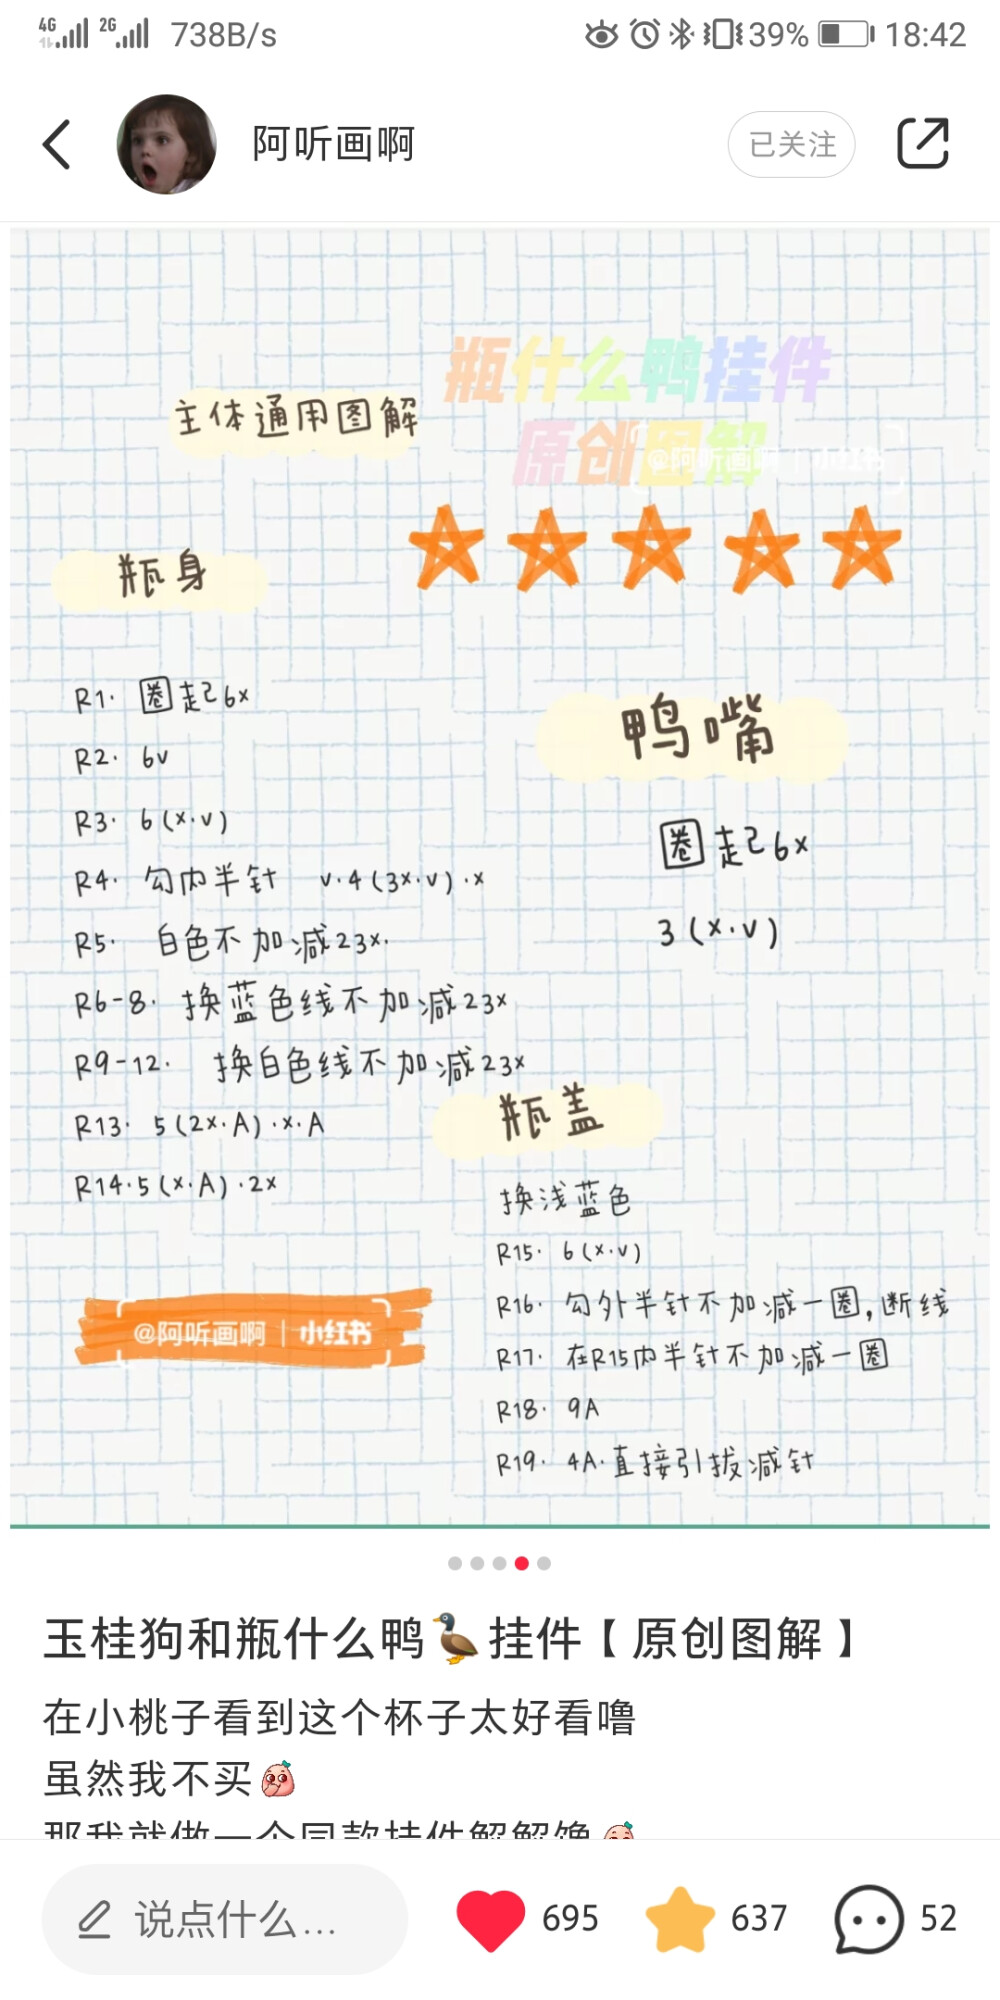 4G 2G 738B/s 39% 18:42
阿听画啊 已关注
瓶什么鸭挂件
主体通用图解
原创图解
@阿听画啊 | 小红书
瓶身
R1· 圈起6x
R2· 6v
R3· 6(x·v)
R4· 勾内半针 v·4(3x·v)·x
R5· 白色不加减23x·
R6-8· 换蓝色线不加减23x
R9-12· 换白色线不加减23x
R13· 5(2x·A)·x·A
R14·5(x·A)·2x
鸭嘴
圈起6x
3(x·v)
瓶盖
换浅蓝色
R15· 6(x·v)
R16· 勾外半针不加减一圈,断线
R17· 在R15内半针不加减一圈
R18· 9A
R19· 4A·直接引拔减针
@阿听画啊 | 小红书
玉桂狗和瓶什么鸭🦆挂件【原创图解】
在小桃子看到这个杯子太好看噜
虽然我不买
那我就做一个同款挂件解解馋
说点什么... 695 637 52